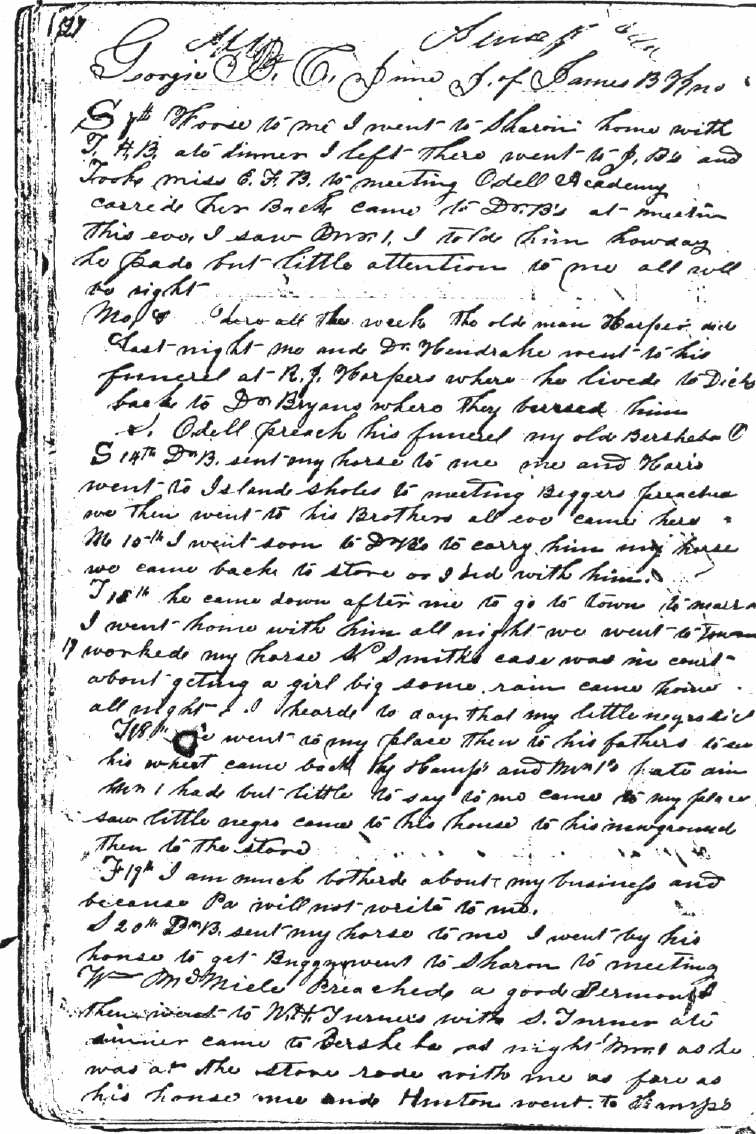 Georgia B. C. June J. of James B
S 7th Horse to me I went to Sharon home with
T. H. B. ate dinner I left there went to J. B's and
Tooke miss E. F. B. to meeting Odell Academy
carrede her Back came to Dr. B's at
this eve, I saw Mr. 1, I tolde him howday
he pade but little attention to me all will
be right
Mo, 8 here all the week the old man Harper did
last night me and Dr. Hendrake went to his
funerel at R. J. Harpers where he livede to Dicks
back to Dr Bryans where they berrsed him
S. Odell preach his funerel my old Bersheba C
S 14th Dr B. sent my horse to me me and Harris
went to Islande sholes to meeting Beggers preachea
we then went to his Brothers all eve came here
M 15th I went soon to Dr B's to carry him my horse
we came back to store or I did with him.
T 16th he came down after me to go to town to
I went home with him all night we went to Town
17 workede my horse Smiths case was in court
about geting a girl big some rain came home
all night & I hearde to day that my little negro did
T 18th we went to my place then to his fathers to see
his wheet came back by Hamp's and Mr 1's hate din
Mr 1 had but little to say to me came to my place
saw little negro came to his house to his newground
then to the store
F 19th I am much botherde about my business and
because Pa will not write to me.
S 20th Dr B. sent my horse to me I went by his
house to get Buggy went to Sharon to meeting
Wm McMiele Preachede a good Sermon &
then went to W. H Turners with S. Turner ate
dinner came to Bersheba at night Mr. 1 as he
was at the store rode with me as fare as
his house me ande Hinton went to Hamps